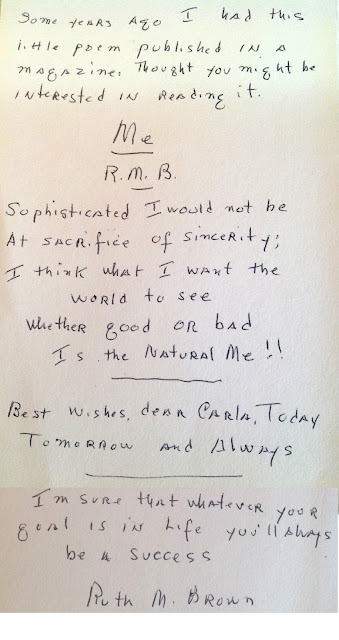 Some years ago I had this
little poem published in a
magazine. Thought you might be
interested in reading it.
Me
R. M. B.
Sophisticated I would not be
At sacrifice of sincerity;
I think what I want the
world to see
whether good or bad
Is the Natural Me!!
Best wishes, dear Carla, Today
Tomorrow and Always
I'm sure that whatever your
goal is in life you'll always
be a success
Ruth M. Brown